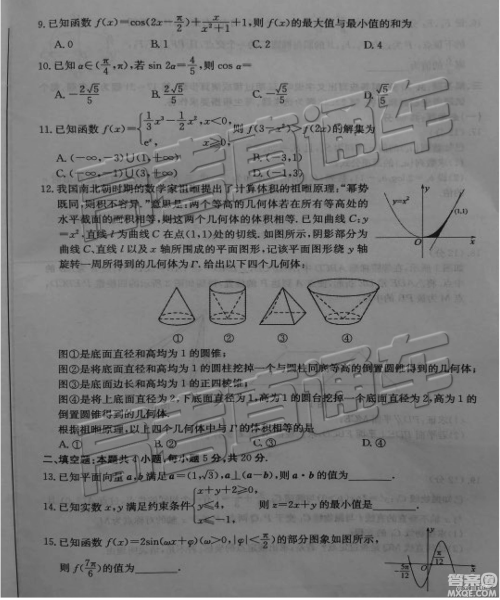 9.已知函数 f(x)=cos(2x-π/2)+x/(x²+1)+1,则 f(x)的最大值与最小值的和为
A.0 B.1 C.2 D.4
10.已知 α∈(π/4,π),若 sin 2α=4/5,则 cos α=
A.-2√5/5 B.2√5/5 C.-√5/5 D.√5/5
11.已知函数 f(x)={1/3x³-1/2x²,x<0, e^x, x≥0, 则 f(3-x²)>f(2x)的解集为
A.(-∞,-3)∪(1,+∞) B.(-3,1)
C.(-∞,-1)∪(3,+∞) D.(-1,3)
12.我国南北朝时期的数学家祖暅提出了计算体积的祖暅原理:“幂势
既同,则积不容异.”意思是:两个等高的几何体若在所有等高处的
水平截面的面积相等,则这两个几何体的体积相等.已知曲线 C:y
=x²,直线 l 为曲线 C 在点(1,1)处的切线.如图所示,阴影部分为
曲线 C、直线 l 以及 x 轴所围成的平面图形,记该平面图形绕 y 轴
旋转一周所得到的几何体为 Γ.给出以下四个几何体:
y=x²
y
(1,1)
O
x
① ② ③ ④
图①是底面直径和高均为 1 的圆锥;
图②是将底面直径和高均为 1 的圆柱挖掉一个与圆柱同底等高的倒置圆锥得到的几何体;
图③是底面边长和高均为 1 的正四棱锥;
图④是将上底面直径为 2,下底面直径为 1,高为 1 的圆台挖掉一个底面直径为 2,高为 1 的
倒置圆锥得到的几何体.
根据祖暅原理,以上四个几何体中与 Γ 的体积相等的是
A.① B.② C.③ D.④
二、填空题:本题共 4 小题,每小题 5 分,共 20 分.
13.已知平面向量 a,b 满足 a=(1,√3),a⊥(a-b),则 a·b 的值为________.
14.已知实数 x,y 满足约束条件{x+y+2≥0, y≤4, x≤-1, 则 z=2x+y 的最小值是________.
15.已知函数 f(x)=2sin(ωx+φ)(ω>0,|φ|<π/2)的部分图象如图所示,
则 f(7π/6)的值为________.
y
O
x
5π/12
π/12
高考直通车
高考直通车
答案圈
MXQE.COM